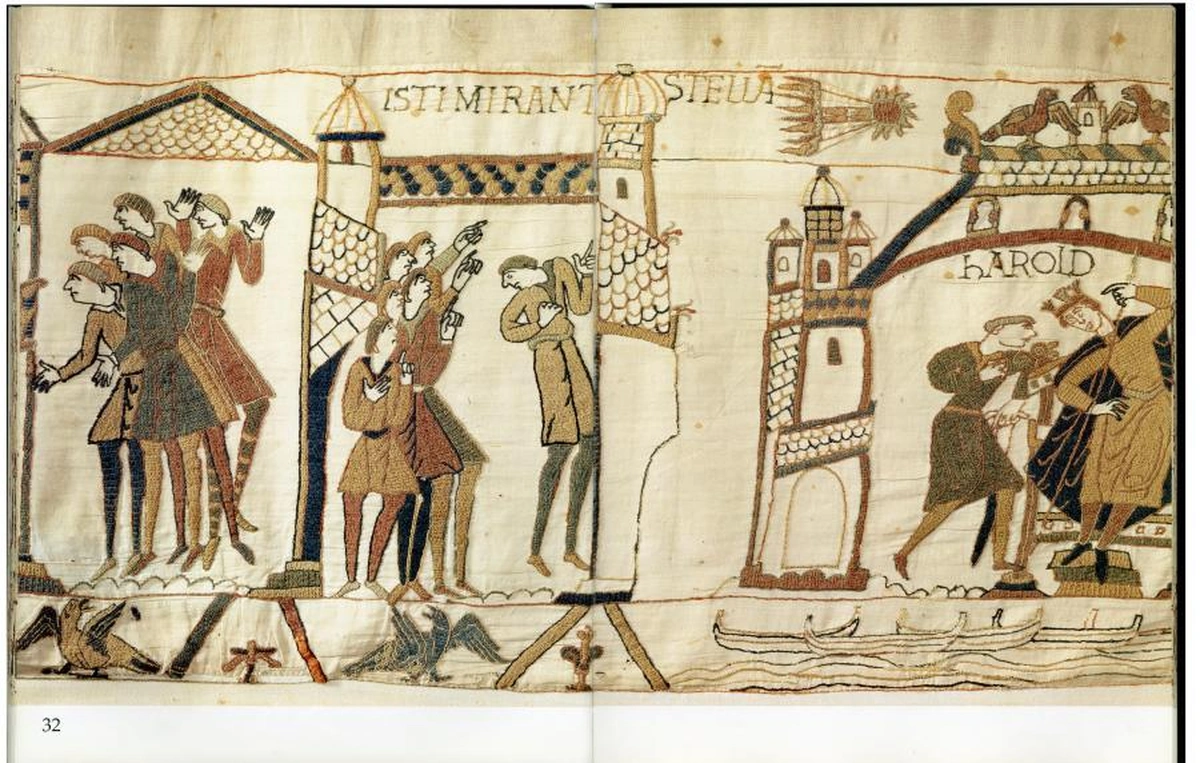 ISTI MIRANT STELLĀ
HAROLD
32